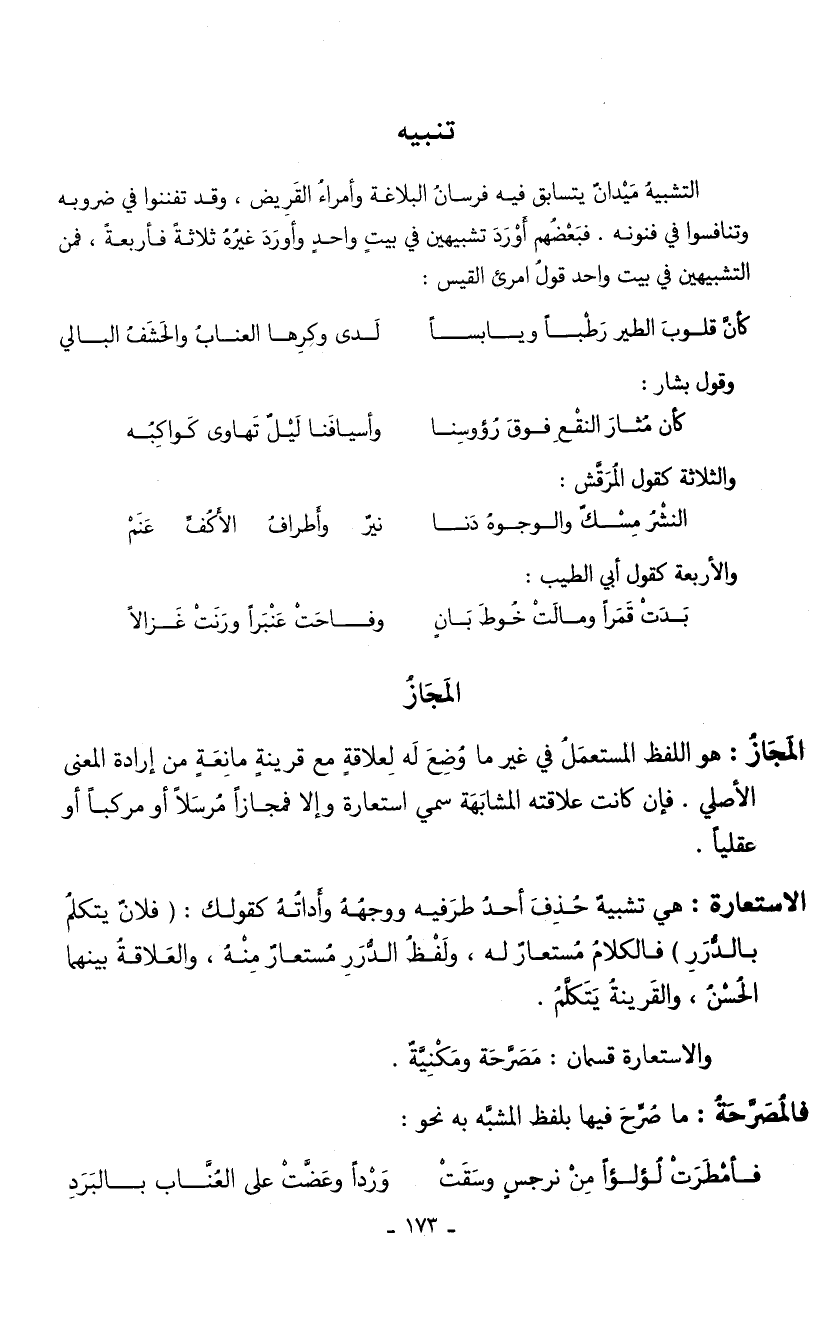 تنبيه
التشبيهُ مَيْدانٌ يتسابق فيه فرسانُ البلاغة وأمراءُ القَرِيض ، وقد تفننوا في ضروبه
وتنافسوا في فنونه . فبَعْضُهم أوْرَدَ تشبيهين في بيتٍ واحدٍ وأورَدَ غيرُهُ ثلاثةً فأربعةً ، فمن
التشبيهين في بيت واحد قولُ امرئ القيس :
كأنَّ قلوبَ الطير رَطْباً ويابساً لَدى وكرِها العنابُ والحَشَفُ البالي
وقول بشار :
كأن مُثارَ النقْعِ فوقَ رُؤوسِنا وأسيافَنا لَيْلٌ تَهاوى كَواكِبُه
والثلاثة كقول المُرَقَّش :
النشْرُ مِسْكٌ والوجوهُ دَنا نيرٌ وأطرافُ الأكُفِّ عَنَمْ
والأربعة كقول أبي الطيب :
بَدَتْ قَمَراً ومالَتْ خُوطَ بَانٍ وفاحَتْ عَنْبَراً ورَنَتْ غَزالاً
المَجَازُ
المَجَازُ : هو اللفظ المستعمَلُ في غير ما وُضِعَ لَه لِعلاقةٍ مع قرينةٍ مانِعَةٍ من إرادة المعنى
الأصلي . فإن كانت علاقته المشابَهَة سمي استعارة وإلا فمجازاً مُرسَلاً أو مركباً أو
عقلياً .
الاستعارة : هي تشبيهٌ حُذِفَ أحدُ طرَفيه ووجهُهُ وأداتُهُ كقولك : ( فلانٌ يتكلمُ
بالدُّرَرِ ) فالكلامُ مُستعارٌ له ، ولَفْظُ الدُّرَرِ مُستعارٌ مِنْهُ ، والعَلاقةُ بينهما
الحُسْنُ ، والقَرينةُ يَتَكَلَّمُ .
والاستعارة قسمان : مَصَرَّحَة ومَكْنِيَّةٌ .
فالمُصَرَّحَةُ : ما صُرِّحَ فيها بلفظ المشبَّه به نحو :
فأمْطَرَتْ لُؤلؤاً مِنْ نرجسٍ وسَقَتْ وَرْداً وعَضَّتْ على العُنَّاب بالبَرَدِ
- ١٧٣ -